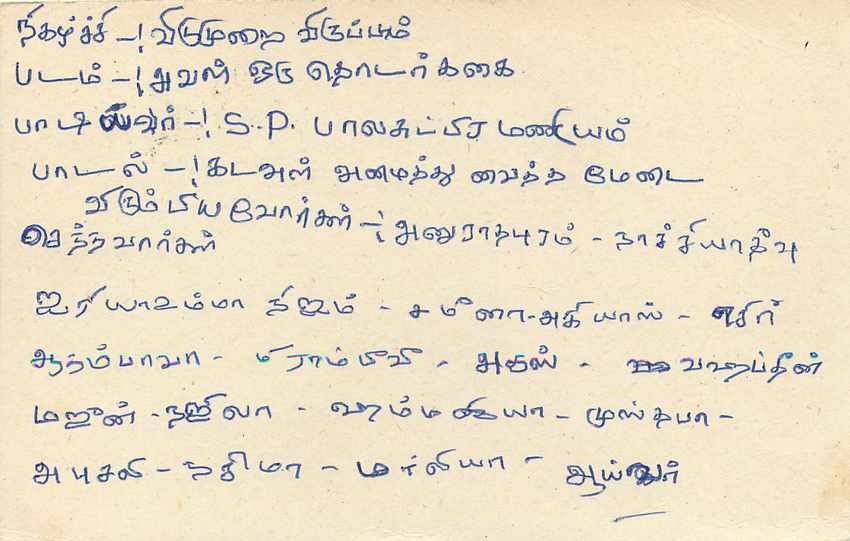 நிகழ்ச்சி -! விடுமுறை விருப்பம்
படம் -! அவள் ஒரு தொடர்கதை
பாடியவர் -! S.P. பாலசுப்பிரமணியம்
பாடல் -! கடவுள் அமைத்து வைத்த மேடை
விரும்பிய வோர்கள் -! அனுராதபுரம் - நாச்சியாதீவு
சேந்தவார்கள்
ஐரியாஉம்மா நிஜம் - சமீனா - அகியாஸ் -
ஆதம்பாவா - மீராம்பீவி - அதஸ் - வஹப்தீன்
மஜீன் - நஜிலா - ஹம்மதியா - முஸ்தபா -
அபுசலி - நசிமா - மர்லியா -